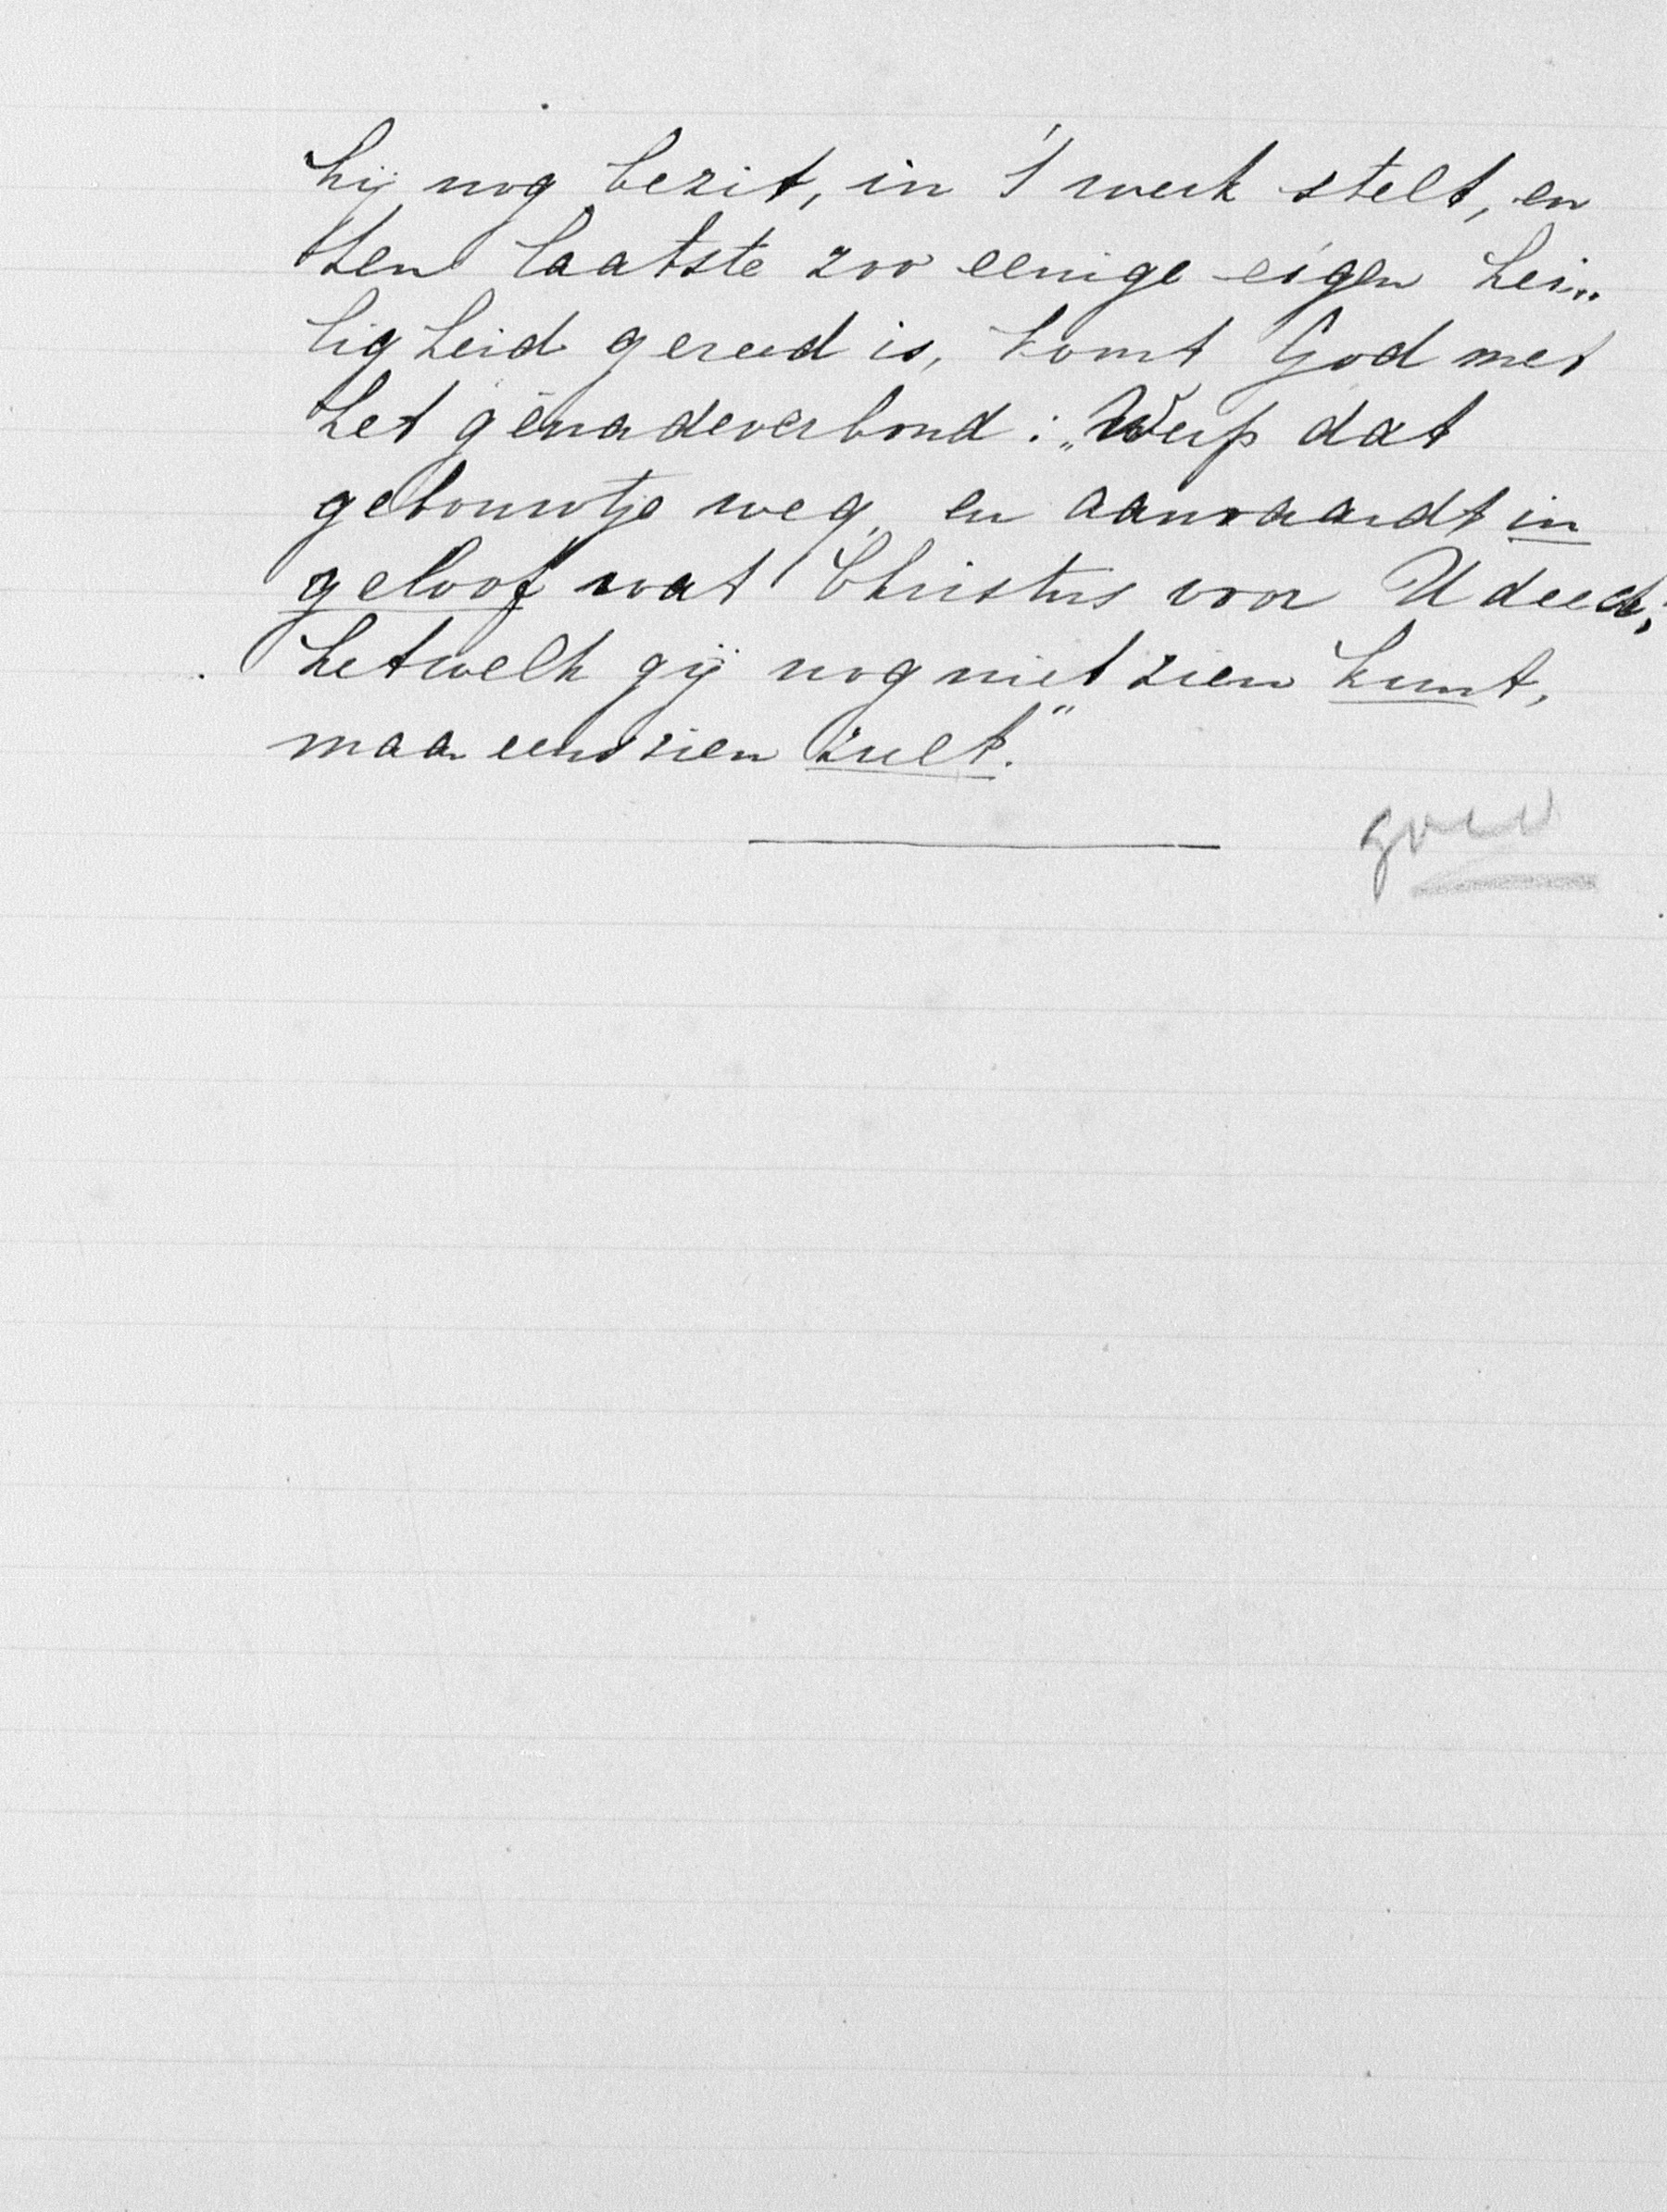 hij nog bezit, in 't werk stelt, en
ten laatste zoo eenige eigen hei„
ligheid gereed is, komt God met
het genadeverbond: „Werp dat
gebouwtje weg, en aanvaardt in
geloof wat Christus voor U deed,
hetwelk gij nog niet zien kunt,
maar eens zien zult."
goed